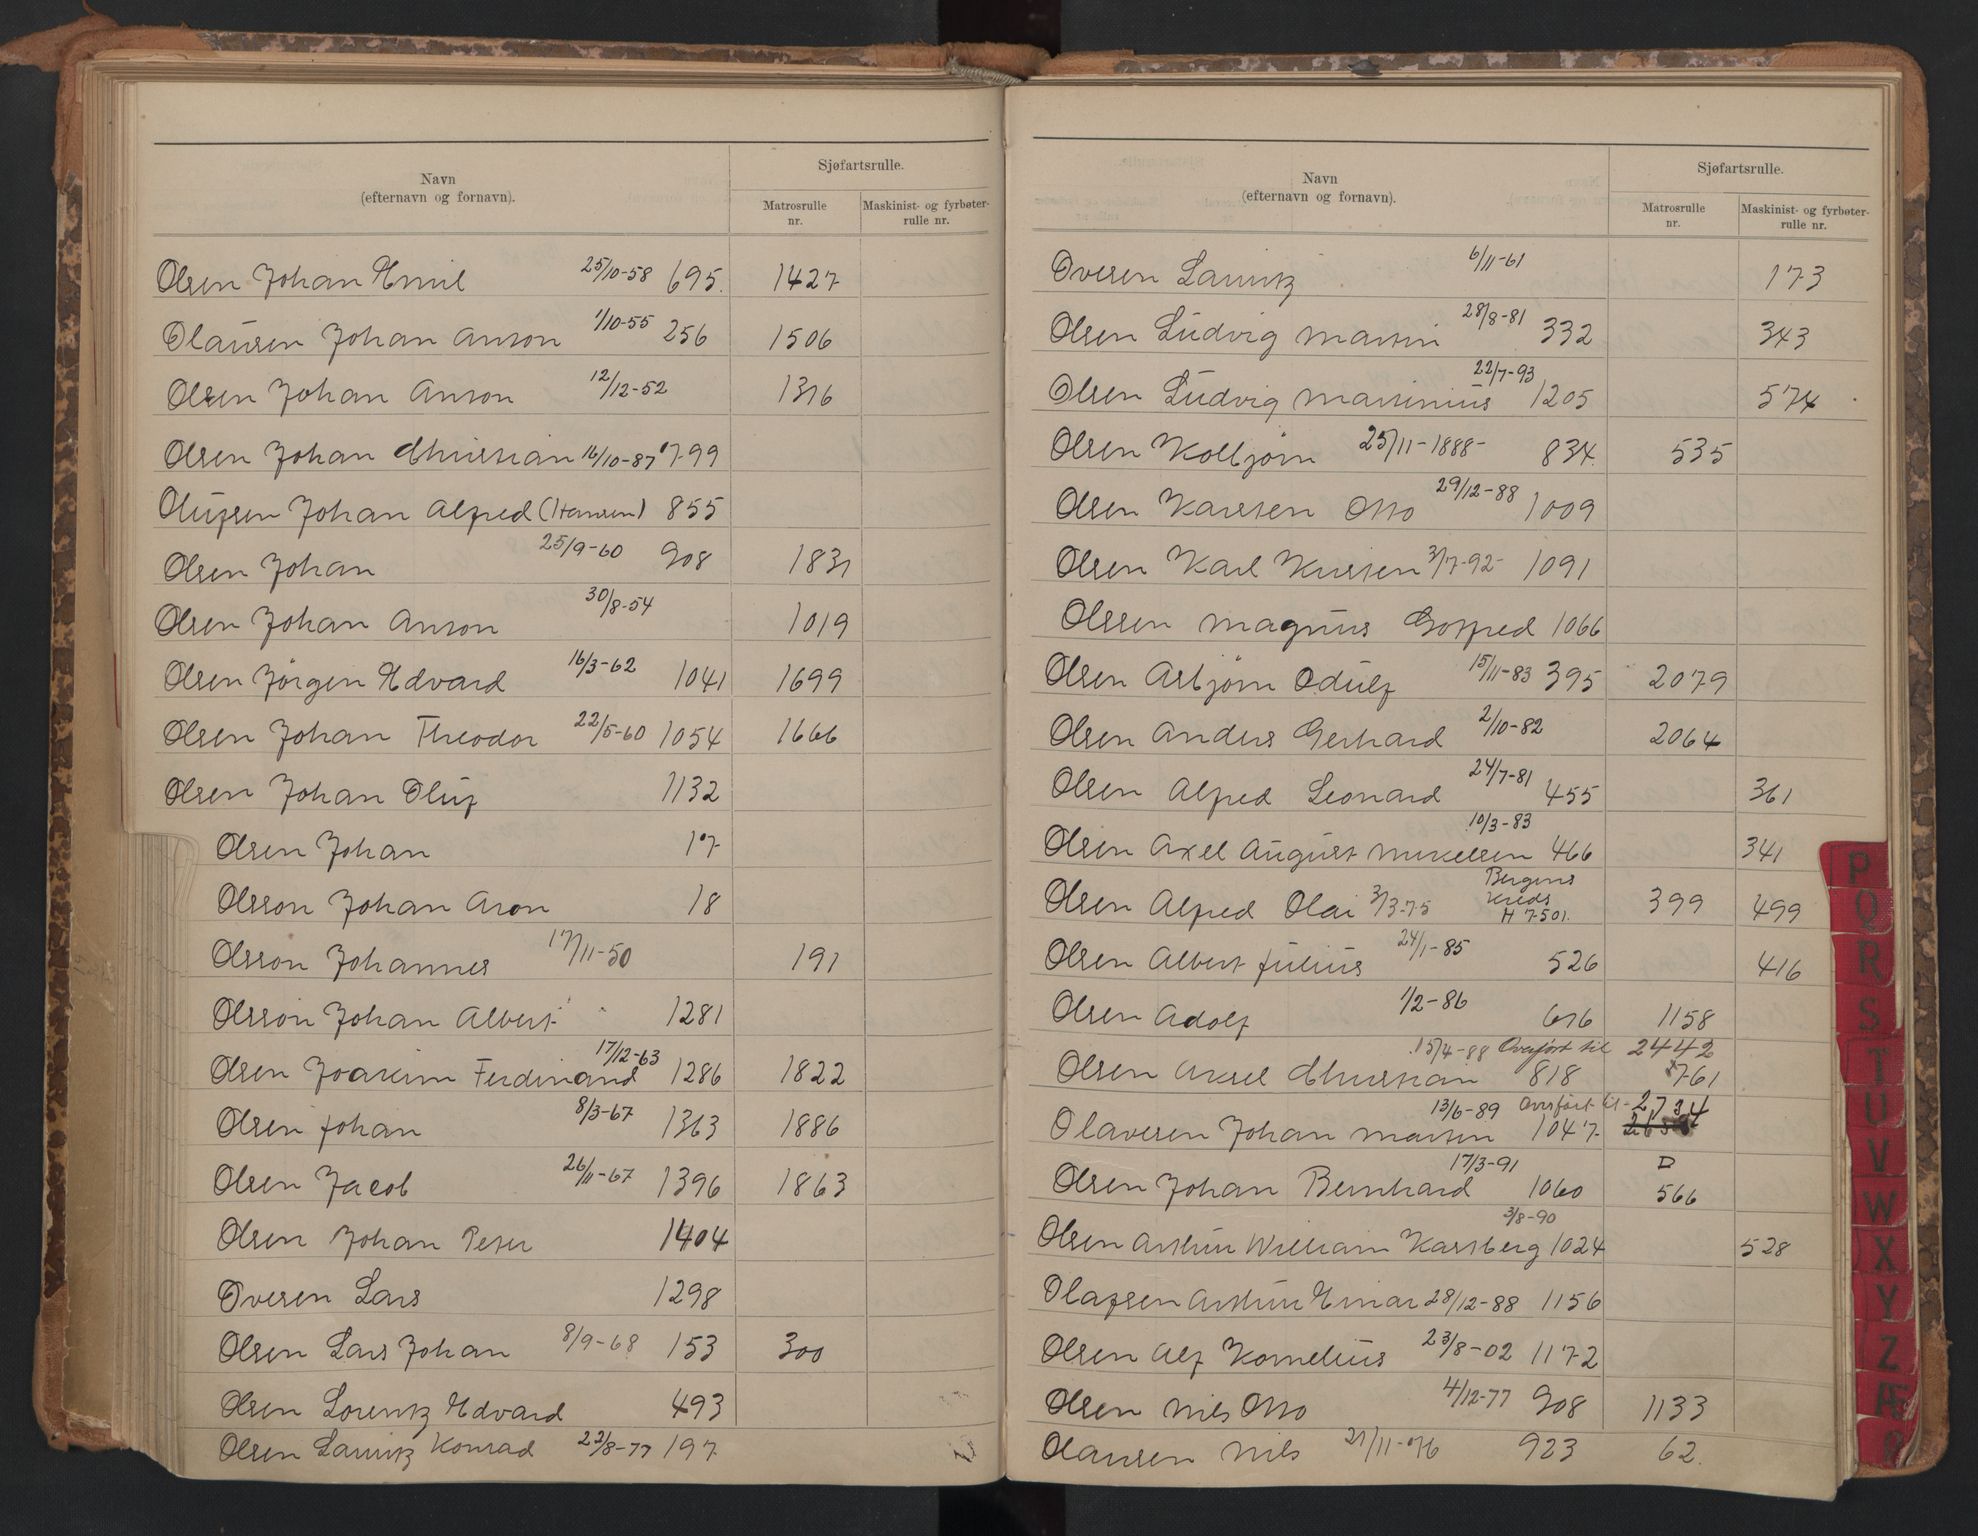 Navn
(efternavn og fornavn).
Sjøfartsrulle.
Matrosrulle
nr.
Maskinist- og fyrbøter-
rulle nr.
Olsen Johan Emil 25/10-58 695. 1427
Olausen Johan Anton 1/10-55 256 1506
Olsen Johan Anton 12/12-52 1316
Olsen Johan Christian 16/10-87 799
Olufsen Johan Alfred (Hansen) 855
Olsen Johan 25/9-60 908 1831
Olsen Johan Anton 30/8-54 1019
Olsen Jörgen Edvard 16/3-62 1041 1699
Olsen Johan Theodor 22/5-60 1054 1666
Olsen Johan Oluf 1132
Olsen Johan 17
Olsson Johan Aron 18
Olsson Johannes 17/11-50 191
Olsson Johan Albert 1281
Olsen Joakim Ferdinand 17/12-63 1286 1822
Olsen Johan 8/3-67 1363 1886
Olsen Jacob 26/11-67 1396 1863
Olsen Johan Peter 1404
Ovesen Lars 1298
Olsen Lars Johan 8/9-68 153 300
Olsen Lorentz Edvard 493
Olsen Lauritz Konrad 22/8-77 197
Navn
(efternavn og fornavn).
Sjøfartsrulle.
Matrosrulle
nr.
Maskinist- og fyrbøter-
rulle nr.
Ovesen Lauritz 6/11-61 173
Olsen Ludvig Martin 28/8-81 332 343
Olsen Ludvig Martinius 22/7-93 1205 574
Olsen Kolbjørn 25/11-1888- 834. 535
Olsen Karsten Otto 29/12-88 1009
Olsen Karl Kristen 3/7-92- 1091
Olssen Magnus Gotfred 1066
Olsen Asbjørn Odulf 15/11-83 395 2079
Olsen Anders Gerhard 2/10-82 2064
Olsen Alfred Leonard 24/7-81 455 361
Olsen Axel August Mikelsen 10/3-83 466 341
Olsen Alfred Olai 3/3-75 Bergens
Kreds
H 7501. 399 499
Olsen Albert Julius 24/1-85 526 416
Olsen Adolf 1/2-86 616 1158
15/4-88 Overført til 2442
Olsen Aksel Christian 818 761
13/6-89 Overført til - 2734
Olavesen Johan Martin 1047
Olsen Johan Bernhard 17/3-91 1060 D
566
Olsen Arthur William Karsberg 3/8-90 1024 528
Olafsen Arthur Einar 28/12-88 1156
Olsen Alf Kornelius 23/8-02 1172
Olsen Nils Otto 4/12-77 908 1133
Olausen Nils 21/11-76 923 62.
P
Q
R
S
T
U
V
W
X
Y
Z
Æ
Ø